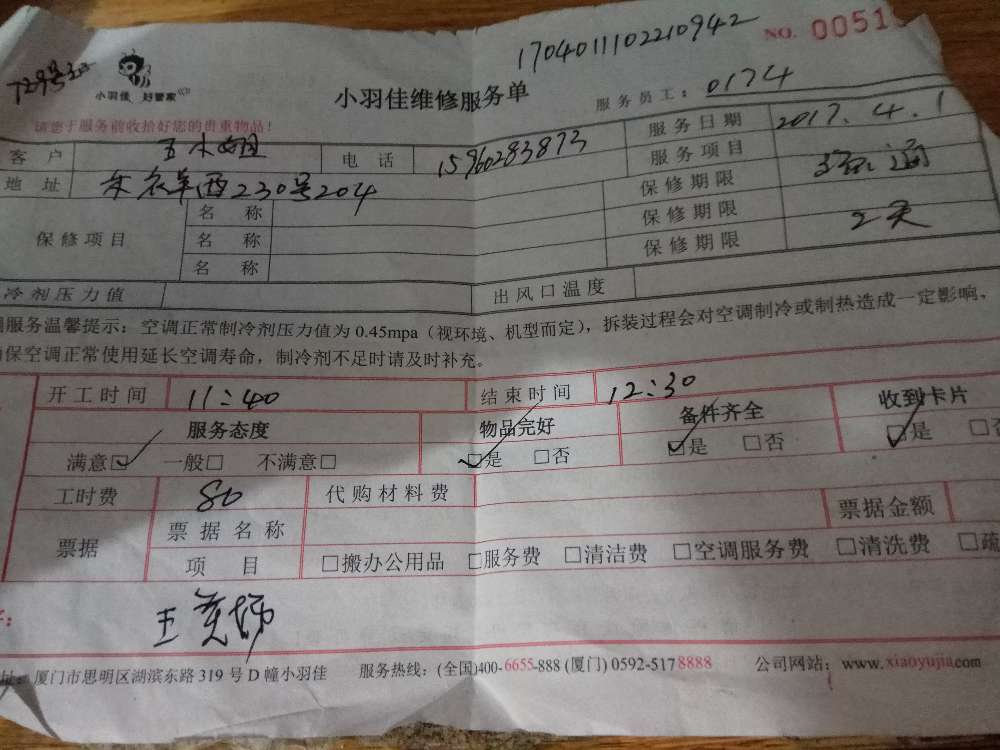 1704011102210942
NO. 0051
729号
小羽佳 好管家
小羽佳维修服务单
服务员工：0174
请您于服务前收拾好您的贵重物品！
服务日期 2017.4.1
客 户 王小姐 电 话 15960283873
服务项目 疏通
地 址 东农草西230号204
保修期限
保修项目 名 称
保修期限 2天
名 称
保修期限
名 称
冷剂压力值 出风口温度
服务温馨提示：空调正常制冷剂压力值为 0.45mpa（视环境、机型而定），拆装过程会对空调制冷或制热造成一定影响、
保空调正常使用延长空调寿命，制冷剂不足时请及时补充。
开工时间 11:40 结束时间 12:30
服务态度 物品完好 备件齐全 收到卡片
满意☑ 一般□ 不满意□ ☑是 □否 ☑是 □否 ☑是 □否
工时费 80 代购材料费
票据 票据名称 票据金额
项 目 □搬办公用品 □服务费 □清洁费 □空调服务费 □清洗费 □疏
王
址：厦门市思明区湖滨东路 319 号 D 幢小羽佳 服务热线：(全国)400-6655-888 (厦门) 0592-5178888 公司网站：www.xiaoyujia.com